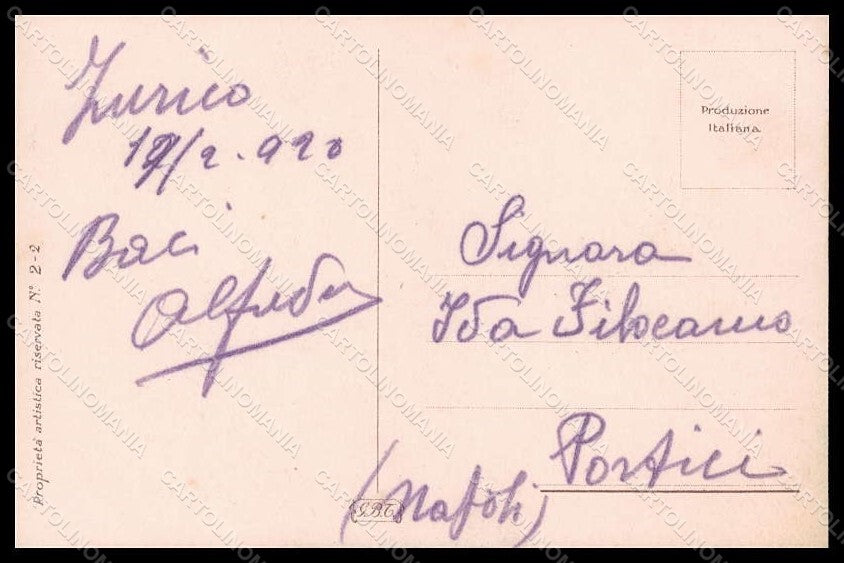 Zurico
19/2.920
Baci
Alfredo
Proprietà artistica riservata N.° 2-2
Produzione
Italiana
Signora
Ida Filocamo
Portici
(Napoli)
GBT
CARTOLINOMANIA